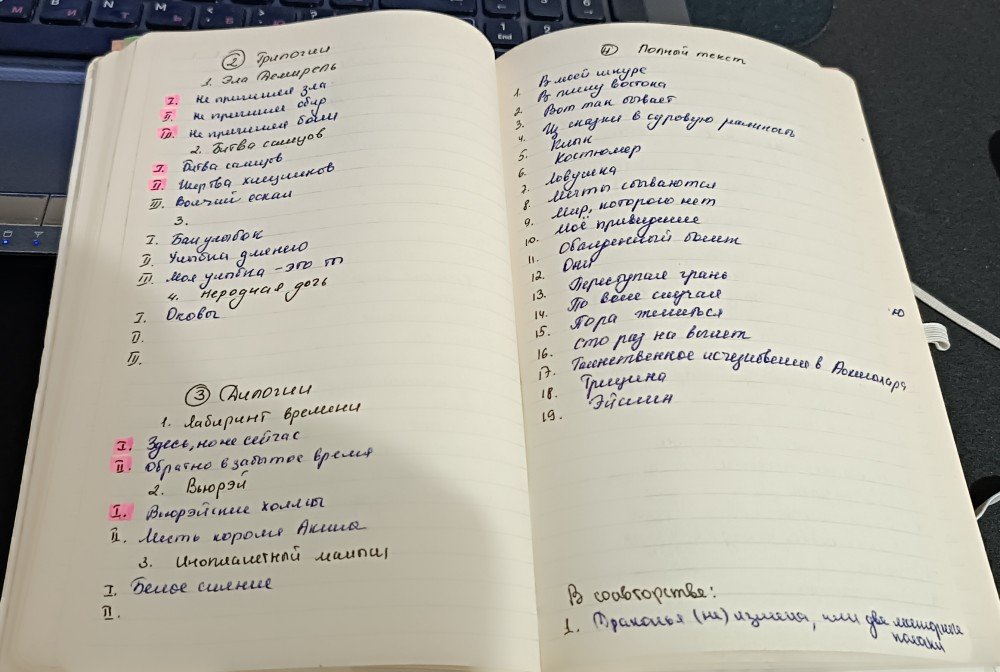 ② Трилогии
1. Эла Демирель
I. Не причиняя зла
II. Не причиняя обид
III. Не причиняя боли
2. Битва самцов
I. Битва самцов
II. Жертва хищников
III. Волчий оскал
3.
I. Бал улыбок
II. Улыбка длиною
III. Моя улыбка - это ты
4. Неродная дочь
I. Оковы
II.
III.
③ Дилогии
1. Лабиринт времени
I. Здесь, но не сейчас
II. Обратно в забытое время
2. Вьюрэй
I. Вьюрэйские холлы
II. Месть короля
3. Инопланетный
I. Белое сияние
II.
④ Полный текст
1. В моей шкуре
2. В плену востока
3. Вот так бывает
4. Из сказки в суровую реальность
5. Клык
6. Костюмер
7. Ловушка
8. Мечты сбываются
9. Мир, которого нет
10. Моё привидение
11. Обалденный полёт
12. Они
13. Переступая грань
14. По воле случая
15. Пора жениться
ю
16. Сто раз на вылет
17. Таинственное исчезновение в
18. Трещина
19.
В соавторстве:
1. Драконья (не) измена, или две